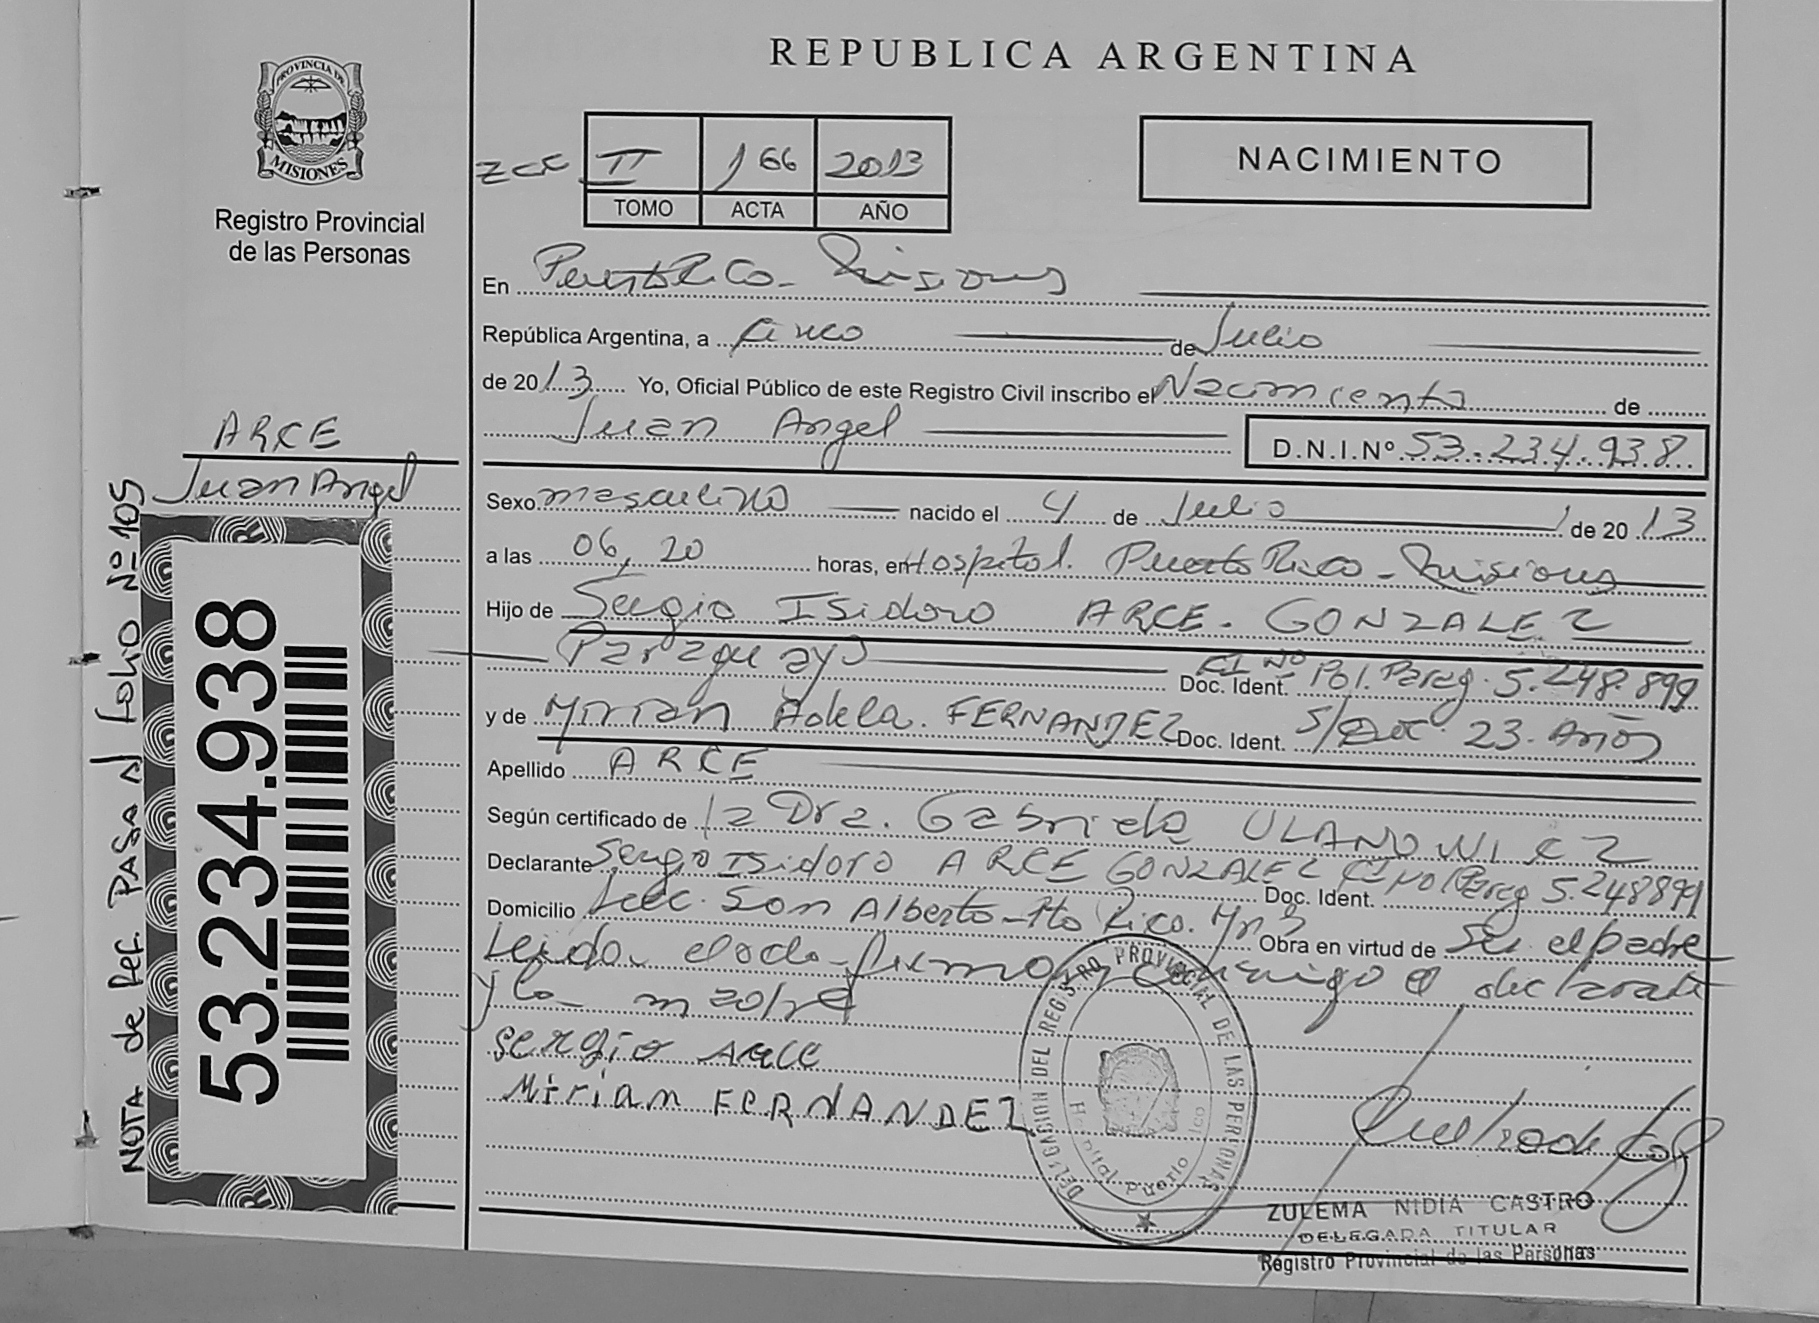 REPUBLICA ARGENTINA
PROVINCIA DE
MISIONES
Registro Provincial
de las Personas
II 166 2013
TOMO ACTA AÑO
NACIMIENTO
En Puerto Rico - Misiones
República Argentina, a cinco de Julio
de 2013 Yo, Oficial Público de este Registro Civil inscribo el Nacimiento de
Juan Angel D.N.I.Nº 53.234.938
ARCE
Juan Angel
NOTA de Ref. PASA Al folio Nº 105
53.234.938
Sexo masculino nacido el 4 de Julio de 2013
a las 06,20 horas, en Hospital. Puerto Rico - Misiones
Hijo de Sergio ISidoro ARCE - GONZALEZ
Paraguayo Doc. Ident. CI Nº Pol. Parag. 5.248.899
y de Mirian Adela. FERNANDEZ Doc. Ident. S/Doc. 23. Años
Apellido ARCE
Según certificado de la Dra. Gabriela ULANOWICZ
Declarante Sergio ISidoro ARCE GONZALEZ Doc. Ident. CI Nº Parag 5.248899
Domicilio San Alberto - Pto Rico. Mns Obra en virtud de Ser el padre
Leida el acta firman conmigo el declarante
y la madre
sergio Arce
Miriam FERNANDEZ
DELEGACION DEL REGISTRO PROVINCIAL DE LAS PERSONAS
Hospital Puerto Rico
ZULEMA NIDIA CASTRO
DELEGADA TITULAR
Registro Provincial de las Personas